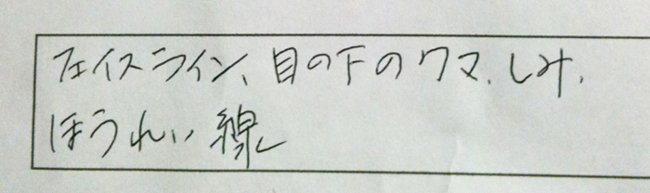 フェイスライン、目の下のクマ、しみ、
ほうれい線